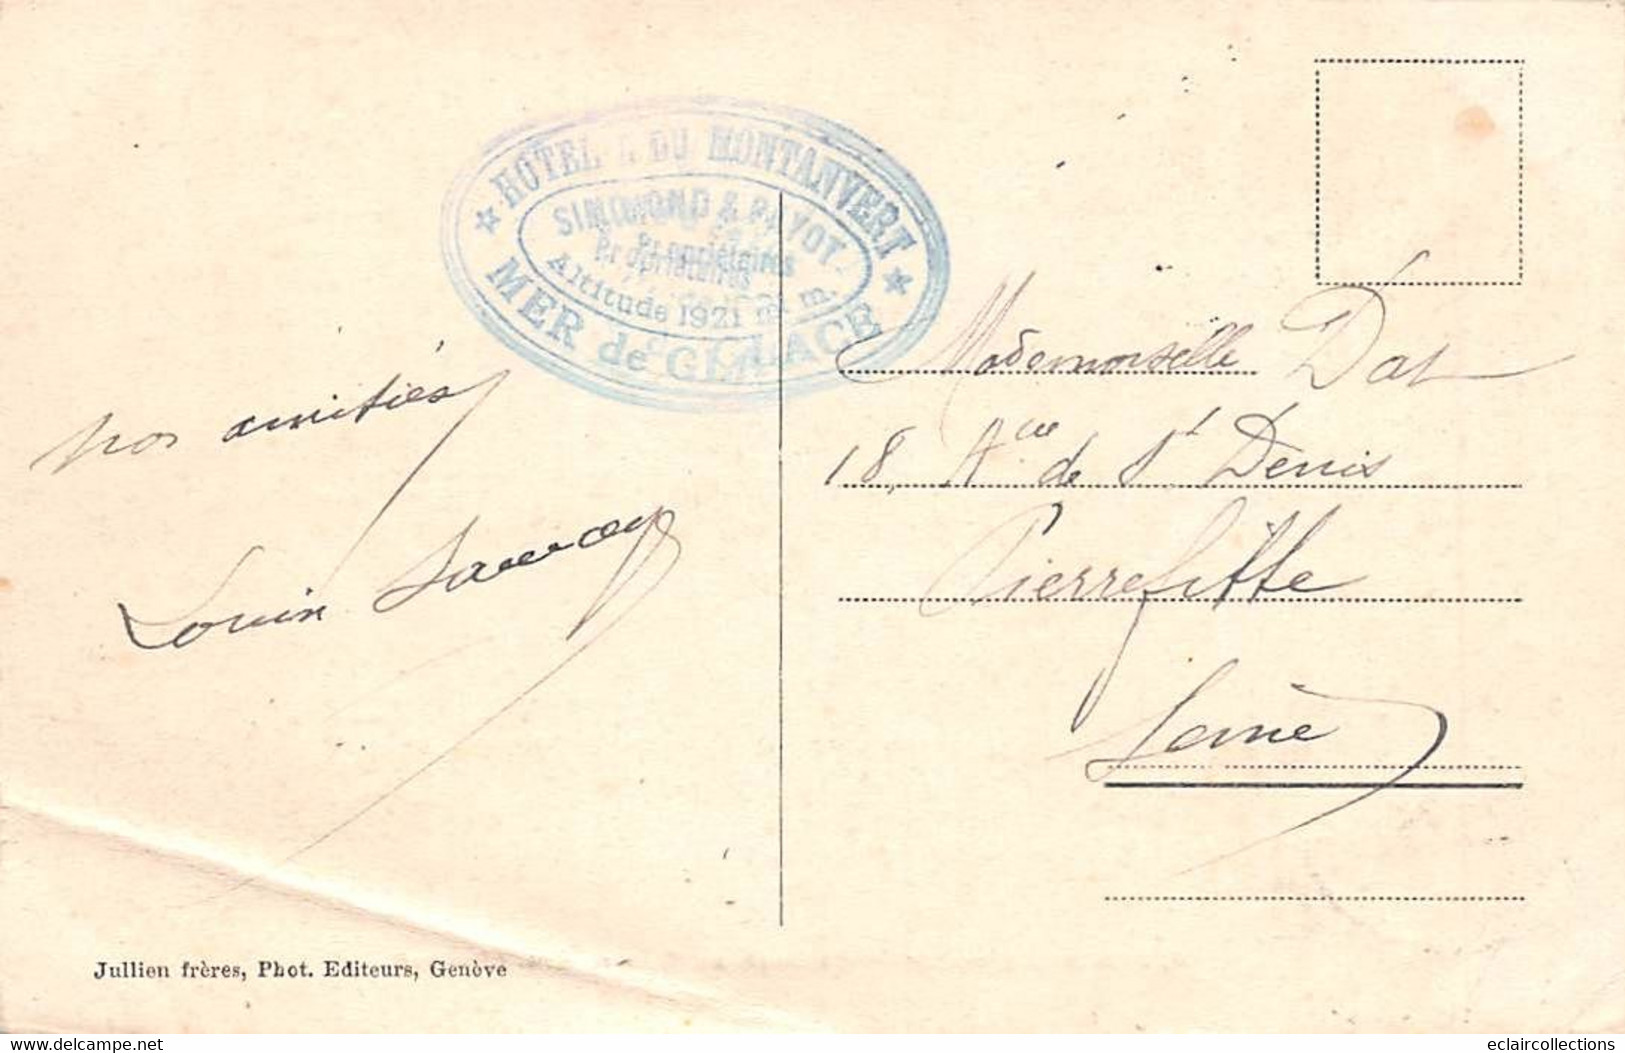 HÔTEL DU MONTANVERT
SIMMOND & PAYOT
Propriétaires
Altitude 1921 m.
MER de GLACE
Nos amitiés
Louis
Mademoiselle Dat
18, Aue de St Denis
Pierrefitte
Seine
Jullien frères, Phot. Editeurs, Genève
www.delcampe.net
eclaircollections